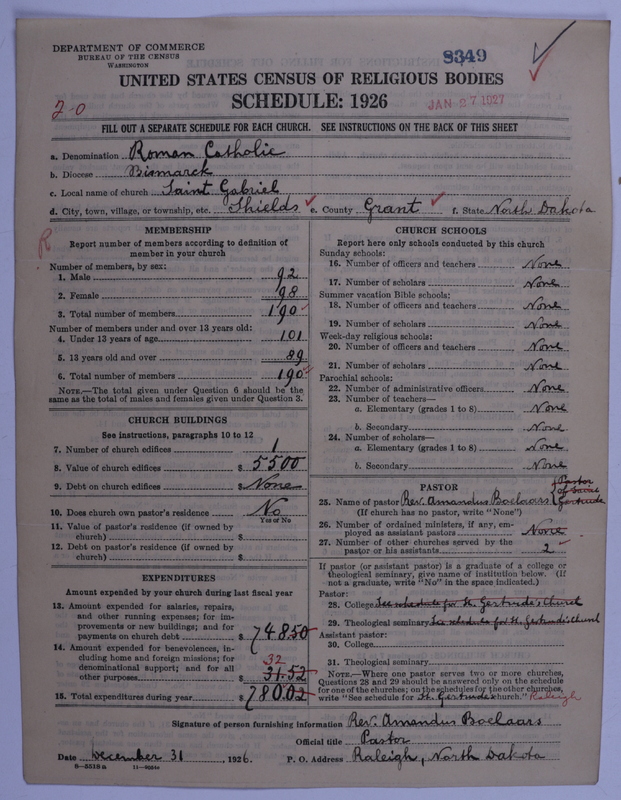 DEPARTMENT OF COMMERCE
BUREAU OF THE CENSUS
WASHINGTON
8349
UNITED STATES CENSUS OF RELIGIOUS BODIES
SCHEDULE: 1926
JAN 27 1927
2-0
FILL OUT A SEPARATE SCHEDULE FOR EACH CHURCH. SEE INSTRUCTIONS ON THE BACK OF THIS SHEET
a. Denomination Roman Catholic
b. Diocese Bismarck
c. Local name of church Saint Gabriel
d. City, town, village, or township, etc. Shields e. County Grant f. State North Dakota
R
MEMBERSHIP
Report number of members according to definition of
member in your church
Number of members, by sex:
1. Male 92
2. Female 98
3. Total number of members 190
Number of members under and over 13 years old:
4. Under 13 years of age 101
5. 13 years old and over 89
6. Total number of members 190
NOTE.—The total given under Question 6 should be the
same as the total of males and females given under Question 3.
CHURCH BUILDINGS
See instructions, paragraphs 10 to 12
7. Number of church edifices 1
8. Value of church edifices $ 5500
9. Debt on church edifices $ None
10. Does church own pastor's residence No
Yes or No
11. Value of pastor's residence (if owned by
church) $
12. Debt on pastor's residence (if owned by
church) $
EXPENDITURES
Amount expended by your church during last fiscal year
13. Amount expended for salaries, repairs,
and other running expenses; for im-
provements or new buildings; and for
payments on church debt $ 748.50
14. Amount expended for benevolences, in-
cluding home and foreign missions; for
denominational support; and for all
other purposes $ 31.52
32
15. Total expenditures during year $ 780.02
CHURCH SCHOOLS
Report here only schools conducted by this church
Sunday schools:
16. Number of officers and teachers None
17. Number of scholars None
Summer vacation Bible schools:
18. Number of officers and teachers None
19. Number of scholars None
Week-day religious schools:
20. Number of officers and teachers None
21. Number of scholars None
Parochial schools:
22. Number of administrative officers None
23. Number of teachers—
a. Elementary (grades 1 to 8) None
b. Secondary None
24. Number of scholars—
a. Elementary (grades 1 to 8) None
b. Secondary None
PASTOR
25. Name of pastor Rev. Amandus Boelaars
Pastor
Gertrude
(If church has no pastor, write "None")
26. Number of ordained ministers, if any, em-
ployed as assistant pastors None
27. Number of other churches served by the
pastor or his assistants 2
If pastor (or assistant pastor) is a graduate of a college or
theological seminary, give name of institution below. (If
not a graduate, write "No" in the space indicated.)
Pastor:
28. College See schedule for St. Gertrude's Church
29. Theological seminary See schedule for St. Gertrude's Church
Assistant pastor:
30. College
31. Theological seminary
NOTE.—Where one pastor serves two or more churches,
Questions 28 and 29 should be answered only on the schedule
for one of the churches; on the schedules for the other churches,
write "See schedule for St. Gertrude's church." Raleigh
Signature of person furnishing information Rev. Amandus Boelaars
Official title Pastor
Date December 31, 1926. P. O. Address Raleigh, North Dakota
8—5518 a